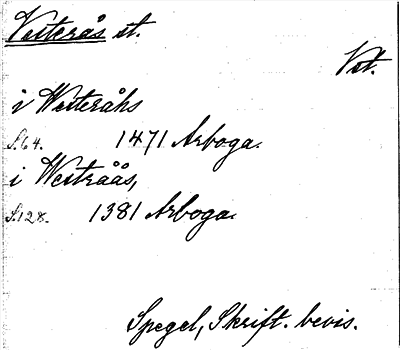 Vesterås st.
Vst.
i Westeråhs
S.64. 1471 Arboga.
i Westråås,
S.128. 1381 Arboga.
Spegel, Skrift. bevis.